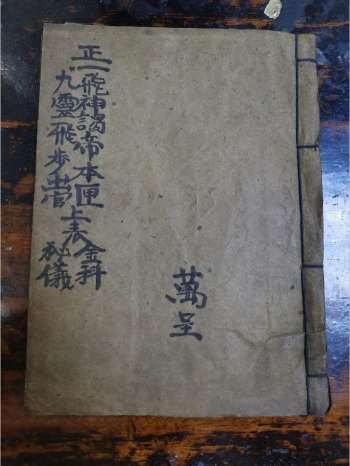 正一
飛神謁帝本匣
九靈飛步
上表
金科
秘儀
萬呈